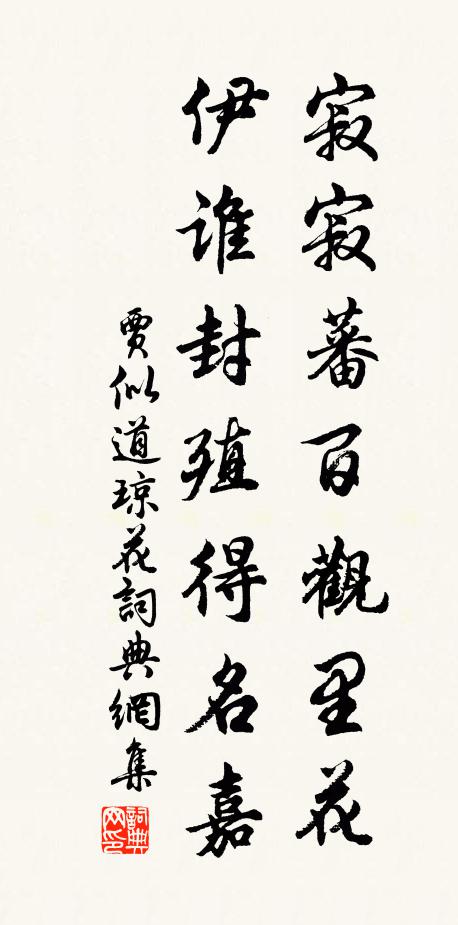 寂寂蕃百觀里花
伊誰封殖得名嘉
賈似道琼花詞典網集
詞典網印